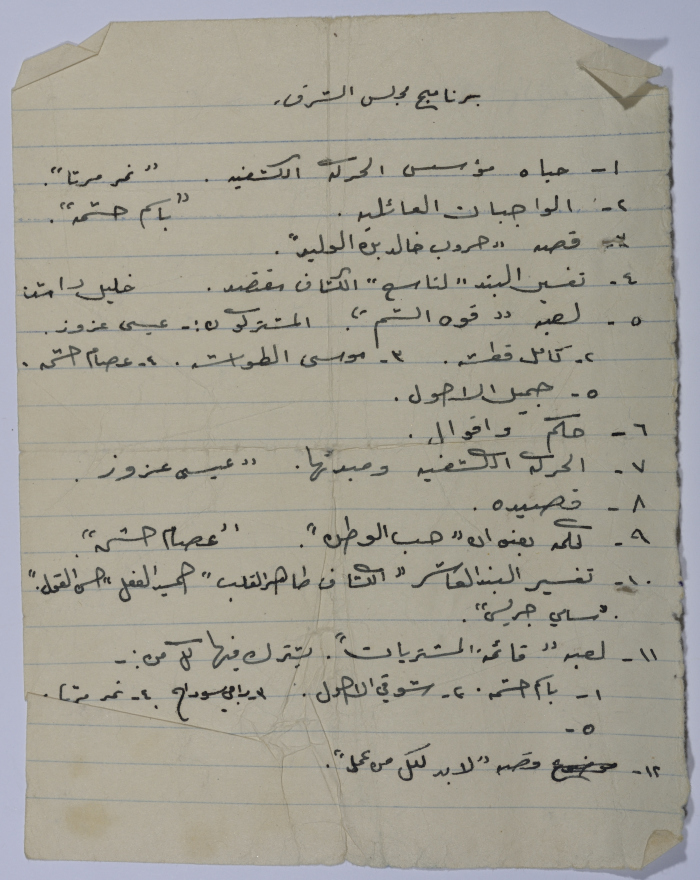 برنامج مجلس الشرف.
١- حياه مؤسس الحركه الكشفيه . "نمر مرتا".
٢- الواجبات العائليه . "باسم حشمه".
٣- قصه "حروب خالد بن الوليد".
٤- تفسير البند "التاسع" الكشاف مقتصد . خليل
٥- لعبه "قوه الشم". المشتركون:- عيسى عزوز .
٢- كامل قطنه . ٣- موسى الطوات . ٤- عصام حشمه .
٥- جميل الاحول .
٦- حكم واقوال .
٧- الحركه الكشفيه ومبدئها . "عيسى عزوز .
٨- قصيده .
٩- كلمه بعنوان "حب الوطن". "عصام حشمه".
١٠- تفسير البند العاشر "الكشاف طاهر القلب" حميد الفعل "حسن القول"
. "سامي جريس".
١١- لعبه "قائمة المشتريات". يشترك فيها كل من:-
١- باسم حشمه . ٢- شوقي الاحول . ٣- رامي سوداح . ٤- نمر مرتا .
٥-
١٢- موضوع وقصه "لابد لكل من عمل".